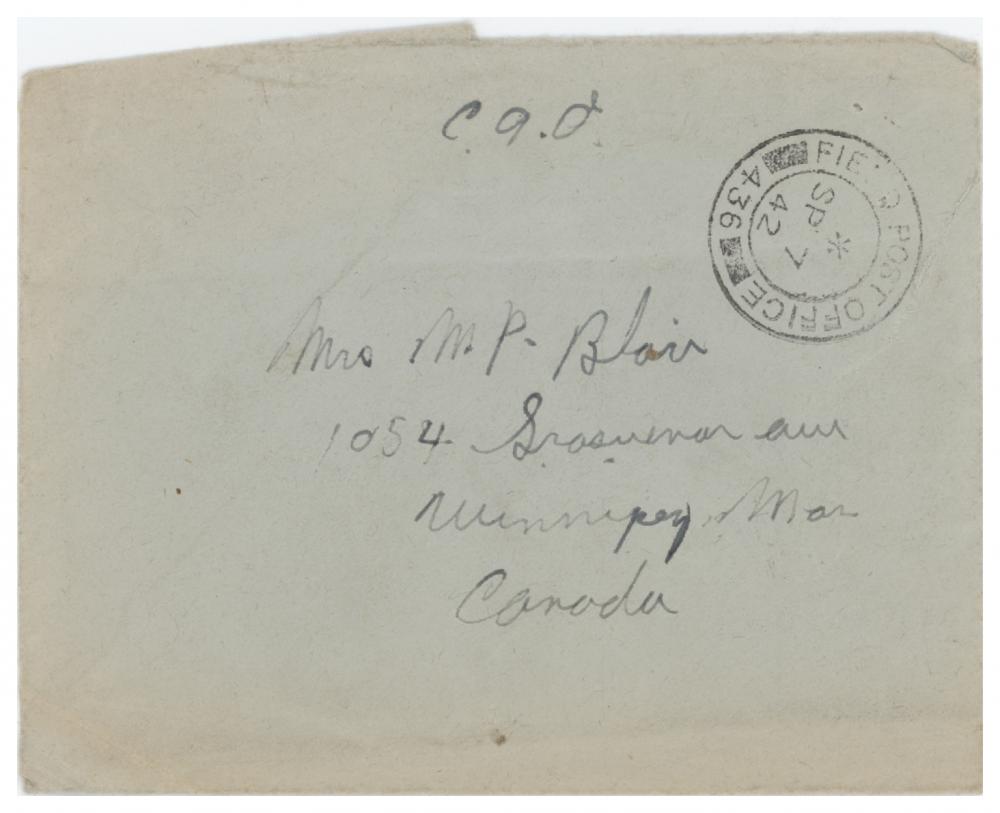 C.A.O
FIELD POST OFFICE
436
* 
SP 7
42
Mrs M P. Blair
1054 Grosvenor ave
Winnipeg, Man
Canada